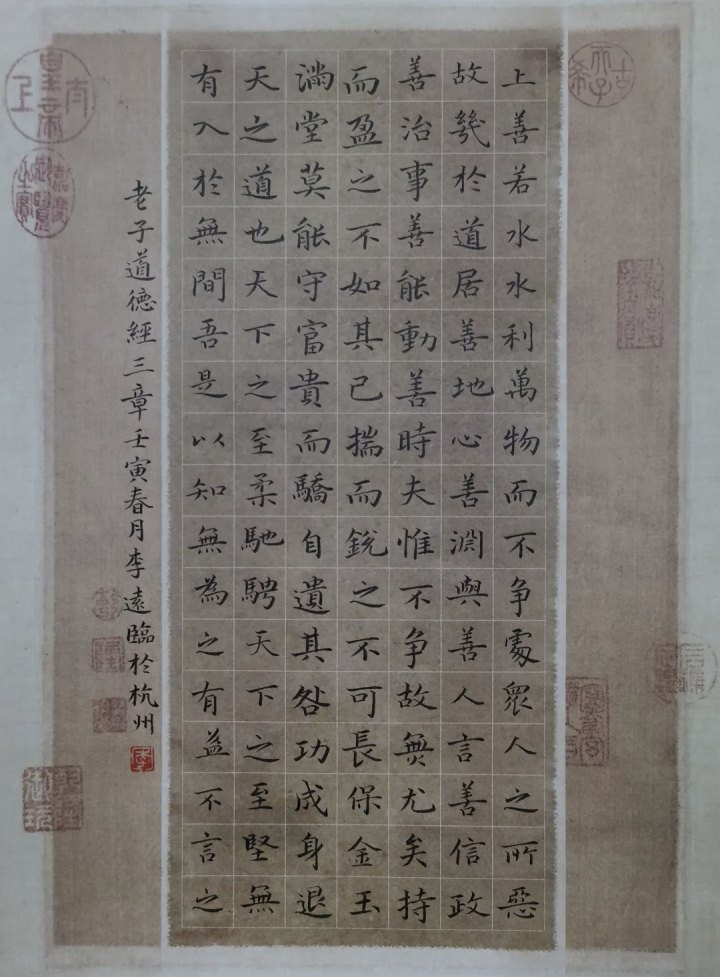 古希天子
上善若水水利萬物而不争處眾人之所惡
故幾於道居善地心善淵與善人言善信政
善治事善能動善時夫惟不争故無尤矣持
而盈之不如其已揣而銳之不可長保金玉
滿堂莫能守富貴而驕自遺其咎功成身退
天之道也天下之至柔馳騁天下之至堅無
有入於無間吾是以知無為之有益不言之
老子道德經三章壬寅春月李遠臨於杭州
李